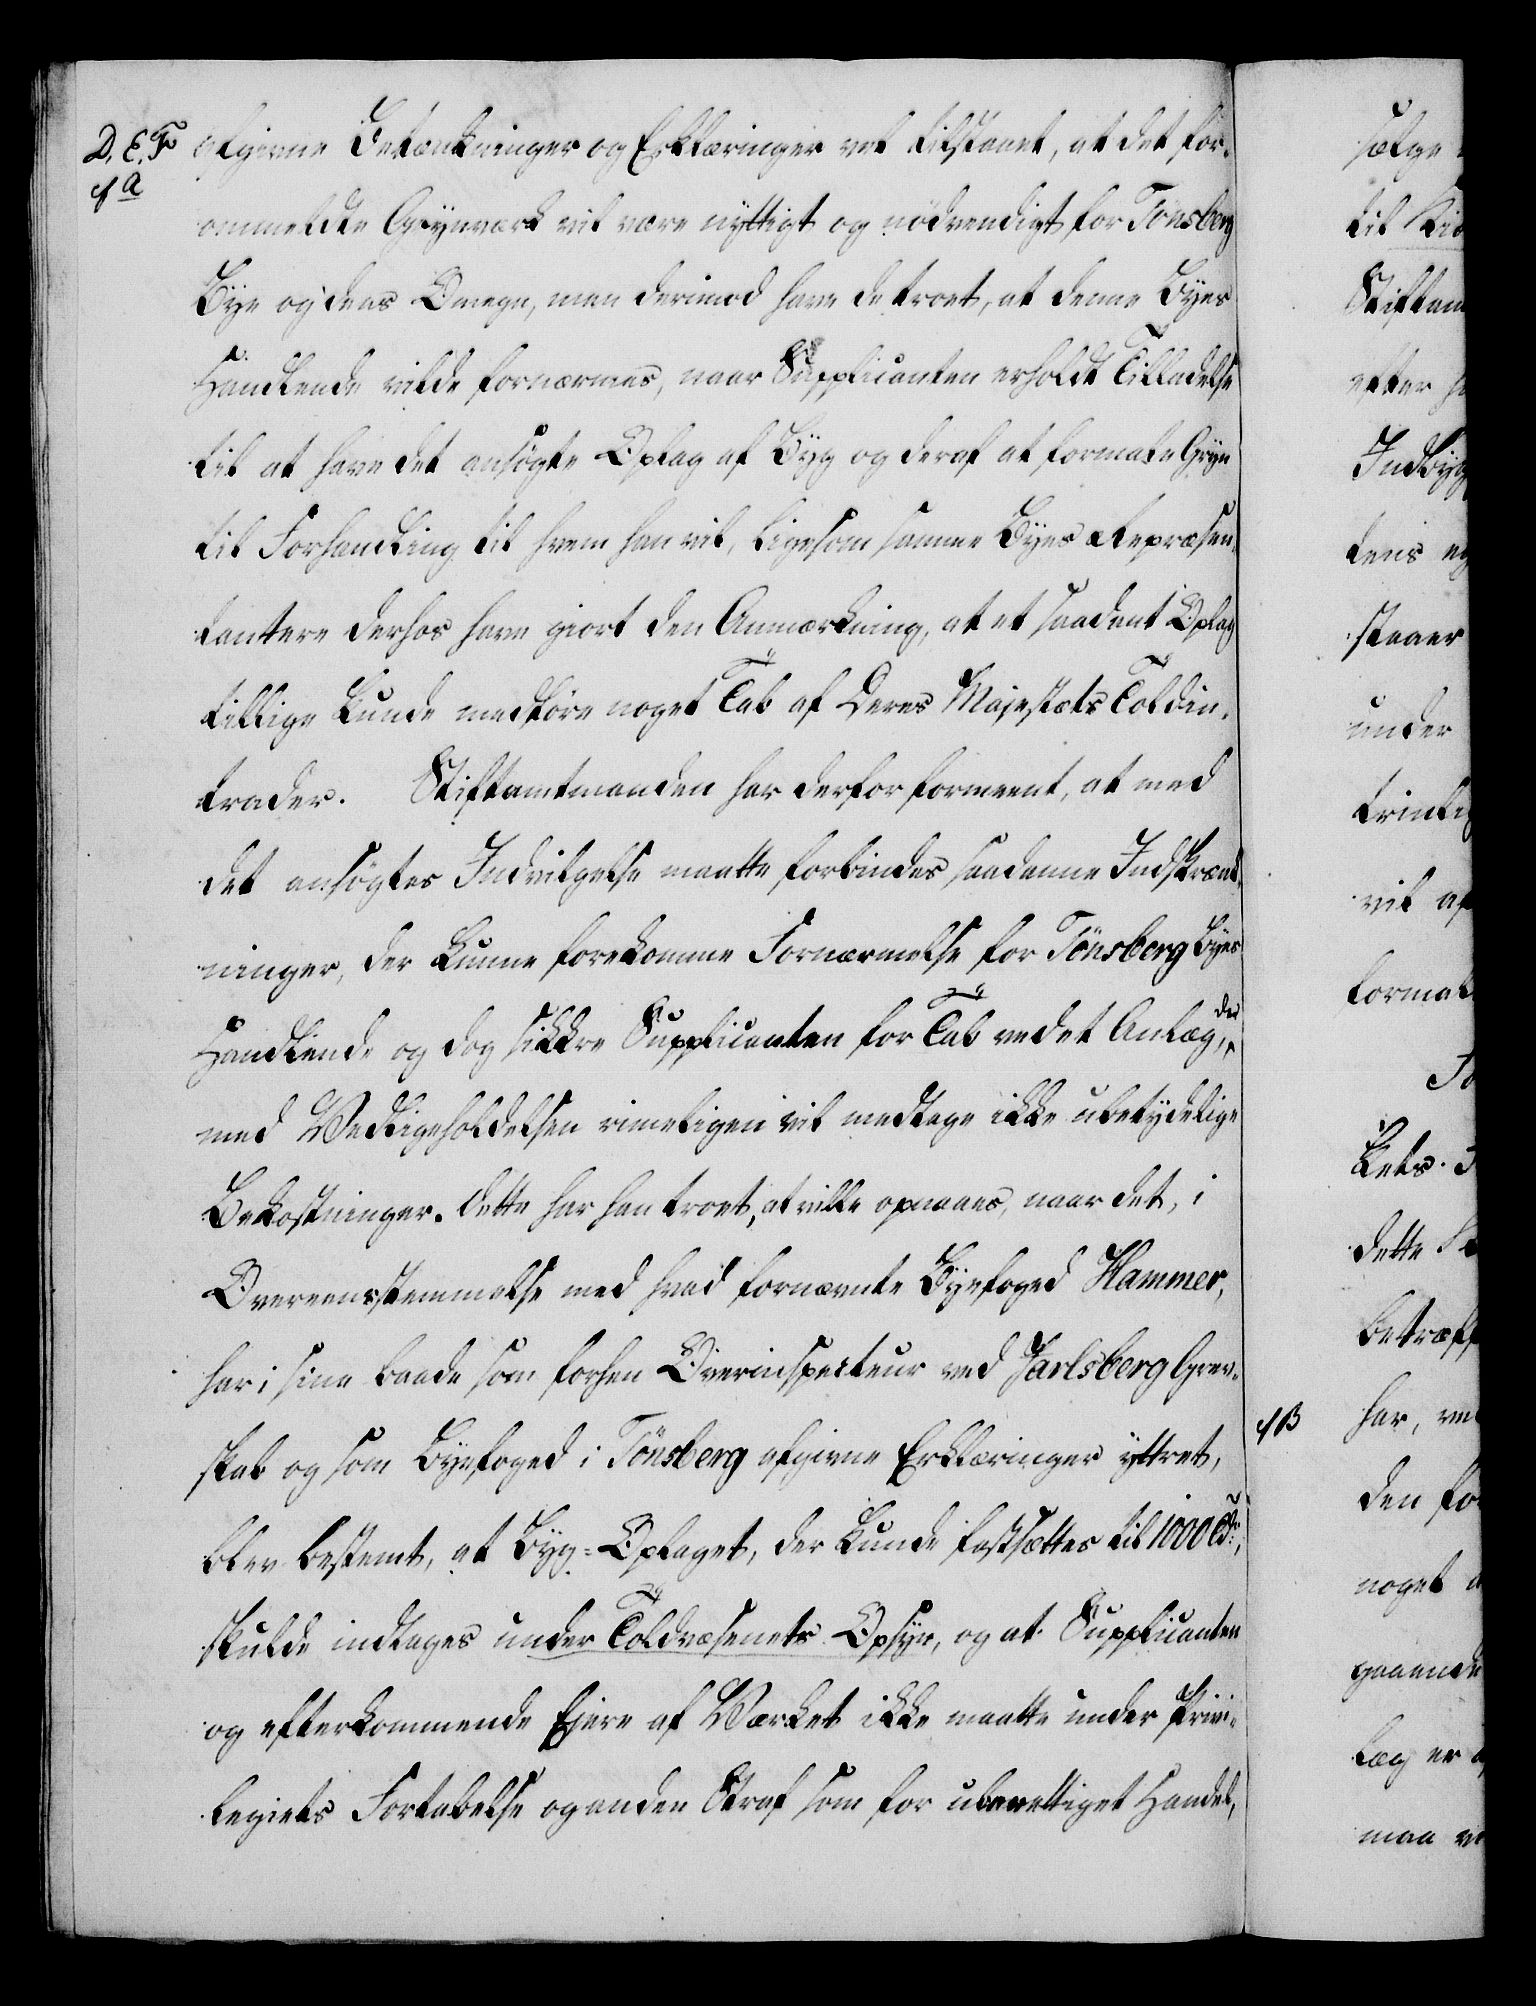 D. E. F
afgivne Betænkninger og Erklæringer vel tilstaaet, at det for-
cf a
ommeldte Grynværk vil være nyttigt og nödvendigt for Tönsberg
Bye og dens Omegn, men derimod have de troet, at denne Byes
Handlende vilde fornærmes, naar Supplicanten erholdt Tilladelse
til at have det ansögte Oplag af Byg og deraf at formale Gryn
til Forhandling til hvem han vil, ligesom samme Byes Repræsen-
tantere derhos have giort den Anmærkning, at et saadant Oplag
tillige kunde medföre noget Tab af Deres Majestæts Toldin-
trader. Stiftamtmanden har derfor formeent, at med
det ansögtes Indvilgelse maatte forbindes saadanne Indskrænk-
ninger, der kunne forekomme Fornærmelse for Tönsberg Byes
Handlende og dog sikkre Supplicanten for Tab ved et Anlæg, der
med Vedligeholdelsen rimeligen vil medtage ikke ubetydelige
Bekostninger. Dette har han troet, at ville opnaaes, naar det, i
Overeensstemmelse med hvad fornævnte Byefoged Hammer,
har i sine baade som forhen Overinspecteur ved Jarlsberg Grev-
skab og som Byefoged i Tönsberg afgivne Erklæringer yttret,
blev bestemt, at Byg-Oplaget, der kunde fastsættes til 1000 Tdr,
skulde indtages under Toldvæsenets Opsyn, og at Supplicanten
og efterkommende Ejere af Værket ikke maatte under Privi-
legiets Fortabelse og anden Straf som for uberettiget Handel,
sælge
til
Stiftam
efter
Indbyg
tens
staaer
under
trinlig
vil af
formal
kets.
dette
betræff
cf B
har, ve
den for
noget
gaaende
læg er
maa